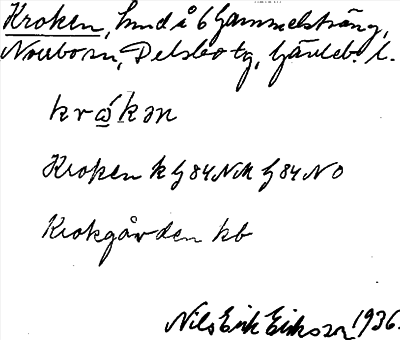 Kroken, hmd å 6 Gammelsträng,
Norrbo sn, Delsbo tg, Gävleb. l.
krώ̣kən
Kroken k G84NM G84NO
Krokgården kb
Nils Erik Eriksson 1936.